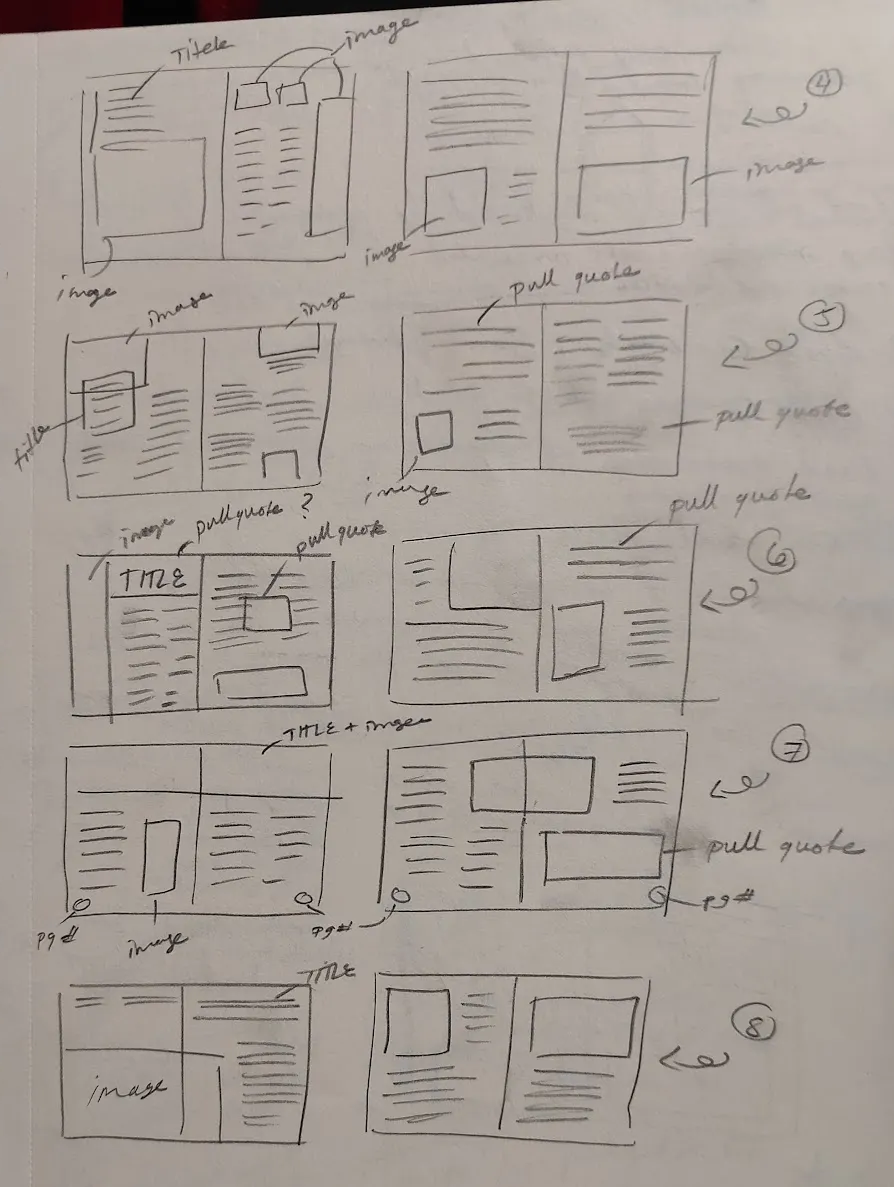 Titele
image
image
image
image
④
image
image
title
pull quote
image
⑤
pull quote
image
pullquote ?
TITLE
pull quote
pull quote
⑥
TITLE + image
pg #
image
pg #
⑦
pull quote
pg #
TITLE
image
⑧